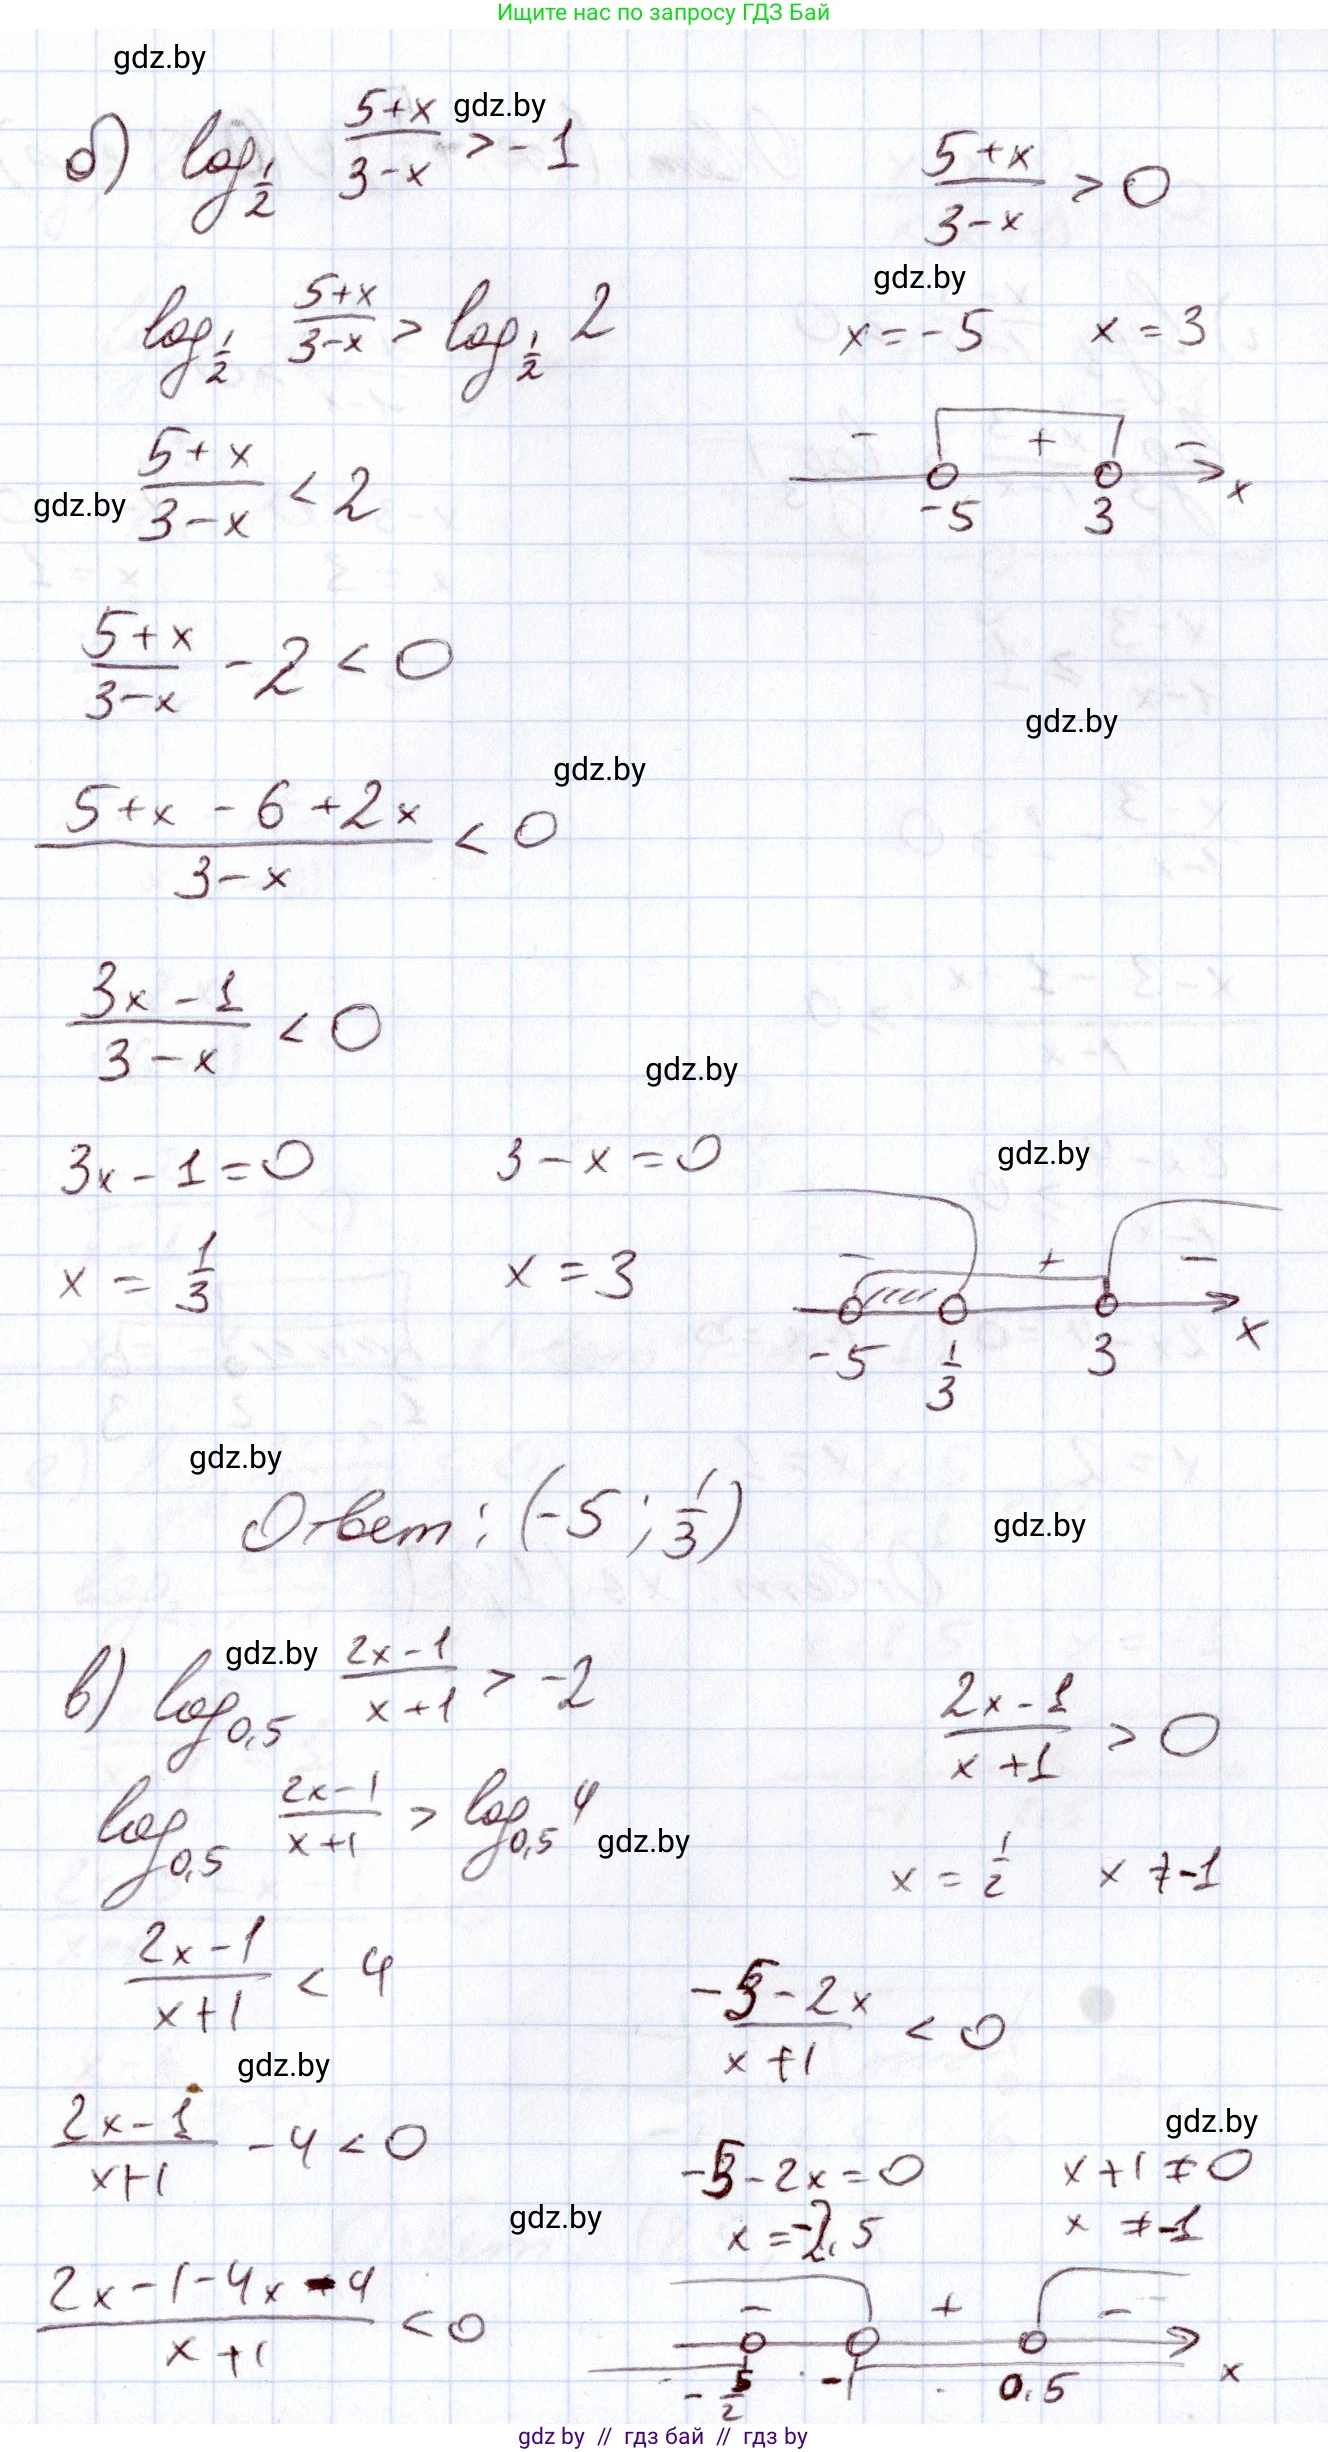 Ищите нас по запросу ГДЗ Бай
gdz.by
б) log_{1/2} (5+x)/(3-x) > -1
gdz.by
(5+x)/(3-x) > 0
gdz.by
log_{1/2} (5+x)/(3-x) > log_{1/2} 2
x = -5 x = 3
(5+x)/(3-x) < 2
- + -
-5 3 x
gdz.by
(5+x)/(3-x) - 2 < 0
gdz.by
gdz.by
(5+x-6+2x)/(3-x) < 0
(3x-1)/(3-x) < 0
gdz.by
3x-1=0 3-x=0
gdz.by
x = 1/3 x = 3
- + -
-5 1/3 3 x
gdz.by
Ответ: (-5; 1/3)
gdz.by
в) log_{0,5} (2x-1)/(x+1) > -2
gdz.by
(2x-1)/(x+1) > 0
log_{0,5} (2x-1)/(x+1) > log_{0,5} 4
gdz.by
x = 1/2 x ≠ -1
(2x-1)/(x+1) < 4
(-5-2x)/(x+1) < 0
gdz.by
(2x-1)/(x+1) - 4 < 0
gdz.by
-5-2x=0 x+1≠0
x=-2,5 x ≠ -1
gdz.by
(2x-1-4x-4)/(x+1) < 0
- + -
-5/2 -1 0,5 x
gdz by // гдз бай // gdz by